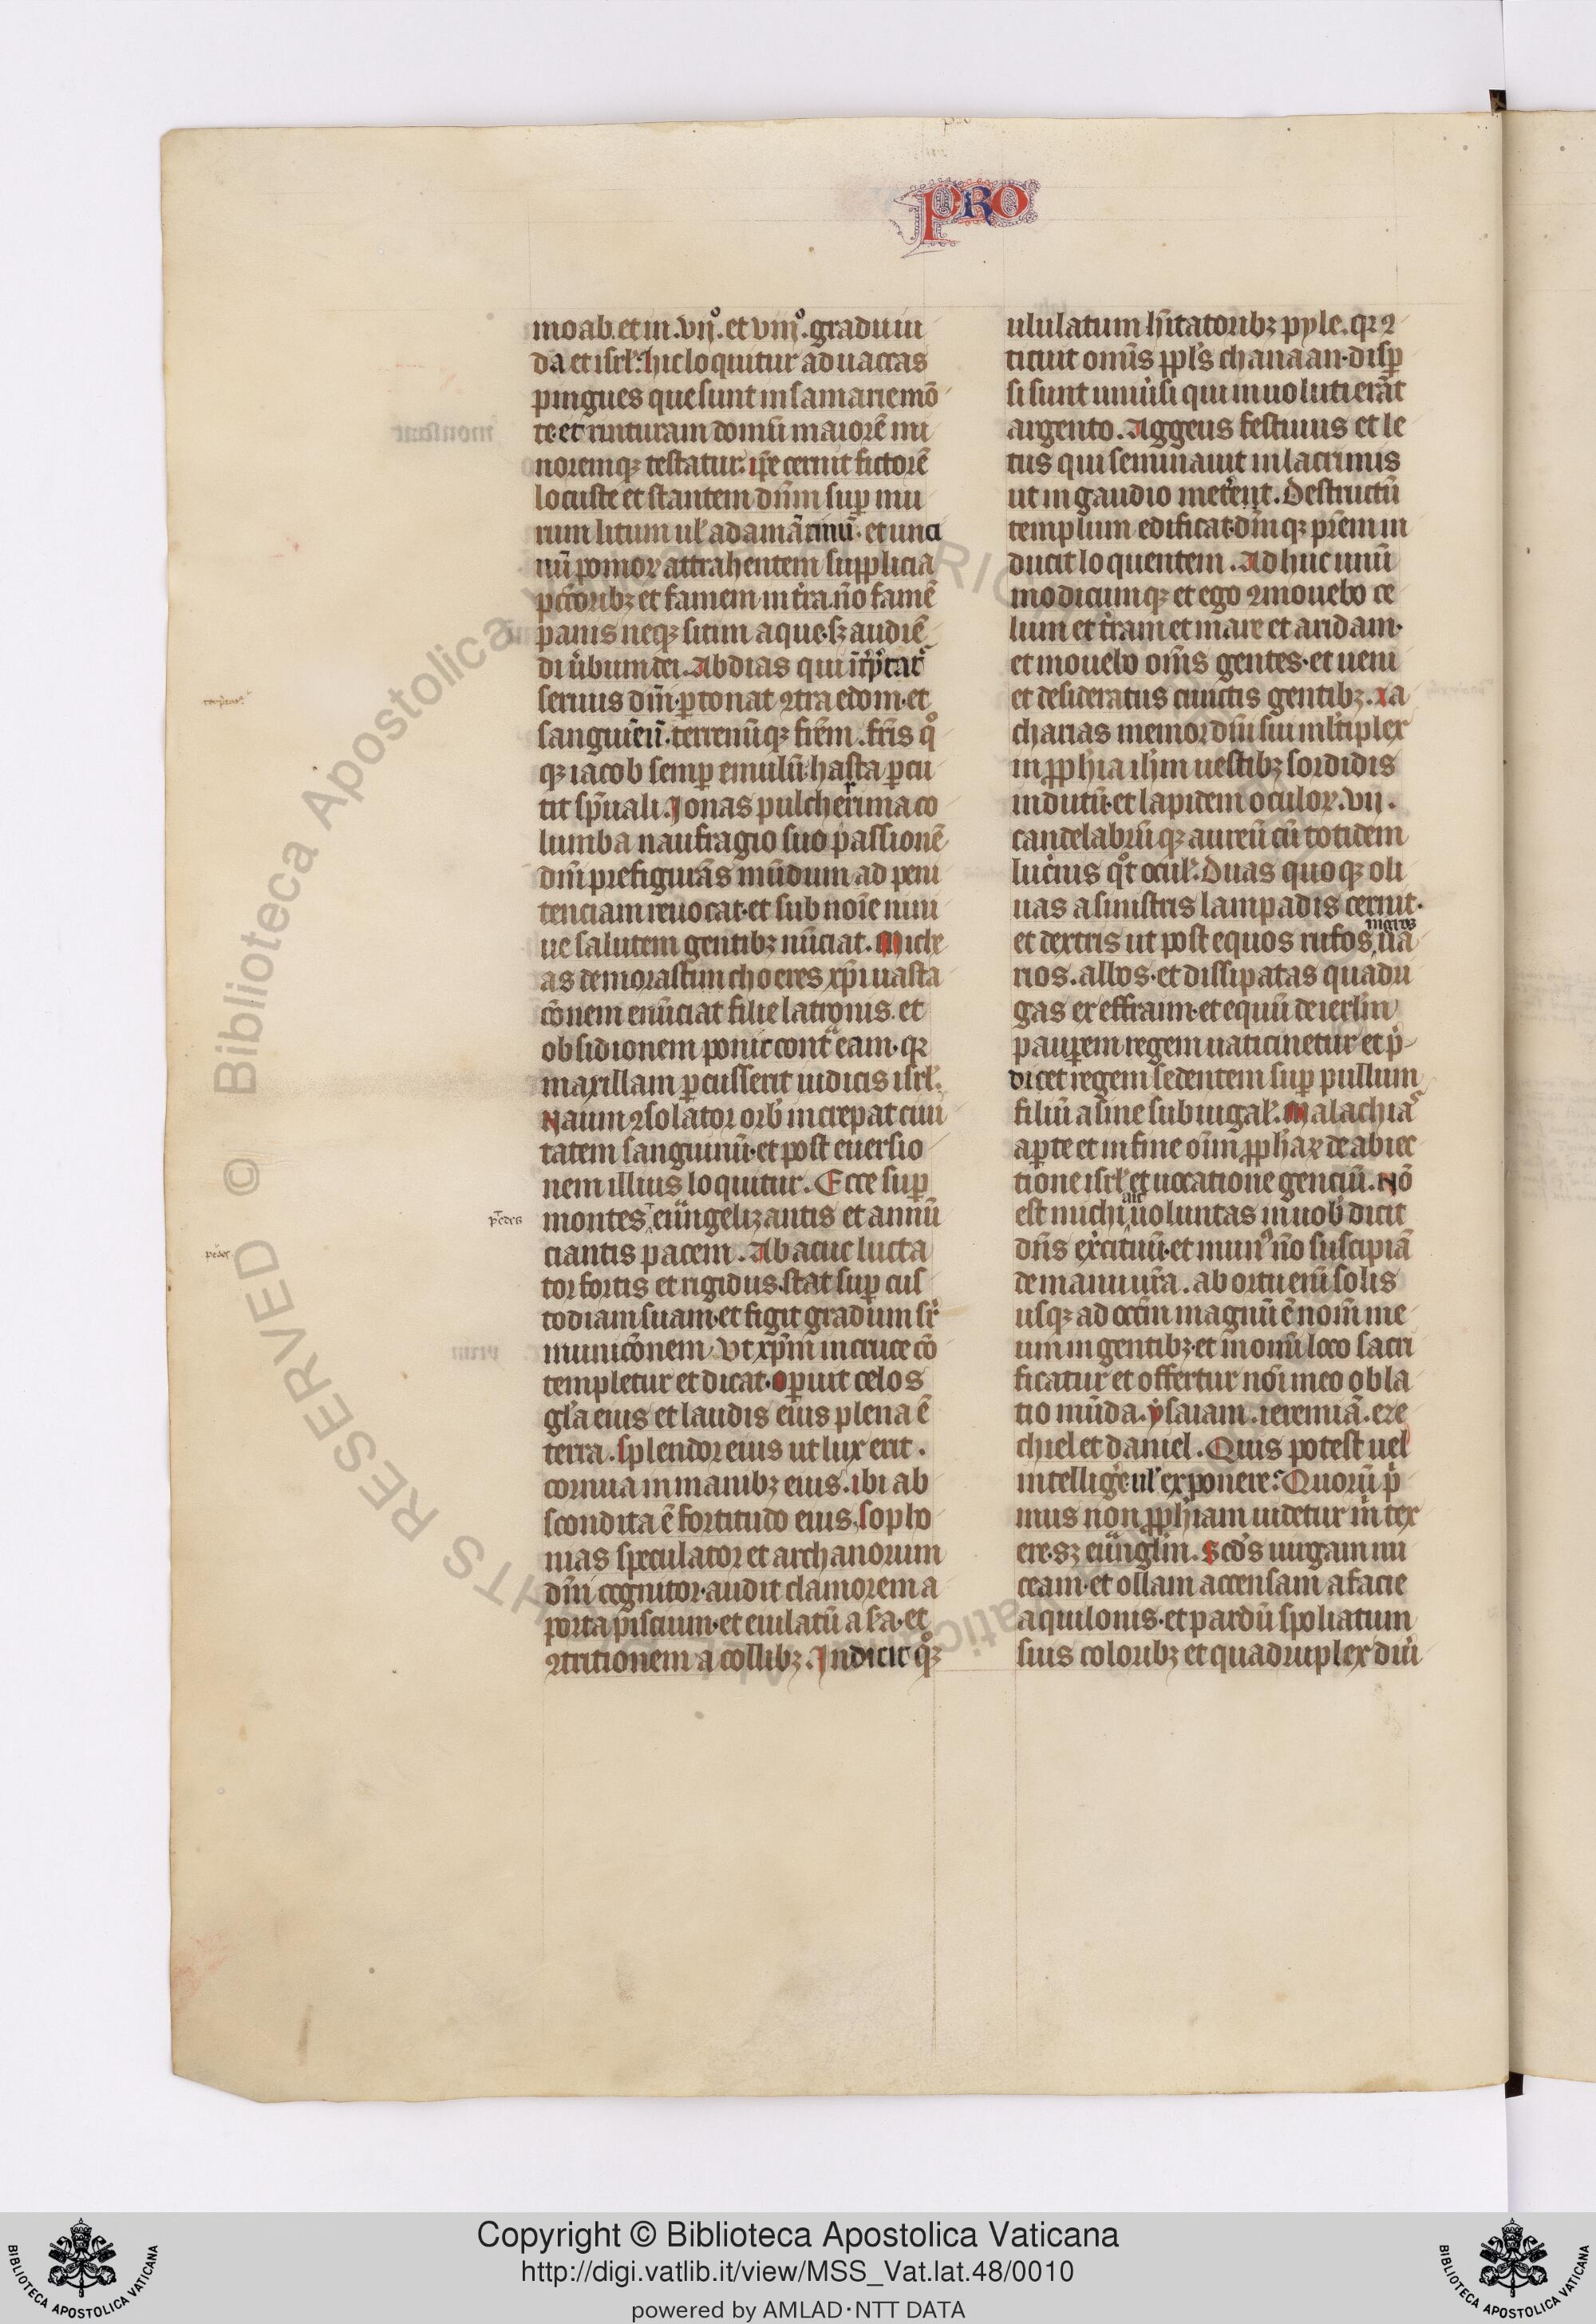 PRO
moab. et in .vijº. et viijº. gradu iu
da et isrl'. hic loquitur ad uaccas
pingues que sunt in samarie mō
te. et ruituram domū maiorē mi
noremqꝫ testatur. ip̄e cernit fictorē
locuste et stantem dn̄m suꝑ mu
rum litum ul' adamātinū. et unci
nū pomoꝝ attrahentem supplicia
pctōribꝫ et famem in t̄ra. nō famē
panis neqꝫ sitim aque. sꝫ audiē
di u̔bum dei. Abdias qui īt̔p̄tat᷑
seruus dn̄i. ꝑtonat ꝯtra edom. et
sanguīeū. terrenūqꝫ frēm. fr̄is qº
qꝫ iacob semꝑ emulū. hasta ꝑcu
tit sp̄uali. Jonas pulcherrima co
lumba naufragio suo passionē
dn̄i prefigurās mūdum ad peni
tenciam reuocat. et sub noīe nini
ue salutem gentibꝫ nūciat. Miche
as de morastim choeres xp̄i uasta
cōnem enūciat filie latronis. et
obsidionem ponit contᵃ eam. qꝛ
maxillam ꝑcusserit iudicis isrl'.
Naum ꝯsolator orb' increpat ciui
tatem sanguinū. et post euersio
nem illius loquitur. Ecce suꝑ
montes eūᵃngelizantis et annū
pedes
ciantis pacem. Abacuc lucta
pedes
tor fortis et rigidus. stat suꝑ cus
todiam suam. et figit gradum sr̄
municōnem. Vt xp̄m in cruce cō
templetur et dicat. Oꝑuit celos
gl'a eius et laudis eius plena ē
terra. Splendor eius ut lux erit.
cornua in manibꝫ eius. ibi ab
scondita ē fortitudo eius. Sopho
nias speculator et archanorum
dn̄i cognitor. audit clamorem a
porta piscium. et eiulatū a sᵃ. et
ꝯtritionem a collibꝫ. Indicit qºꝫ
ululatum hītatoribꝫ pyle. qꝛ ꝯ
ticuit omīs ppl's chanaan. disꝑ
si sunt uniu̔si qui inuoluti erāt
argento. Aggeus festiuus et le
tus qui seminauit in lacrimis
ut in gaudio met̔ent. Destructū
templum edificat. dm̄qꝫ pr̄em in
ducit loquentem. Adhuc unū
modicumqꝫ et ego ꝯmouebo ce
lum et t̔ram et mare et aridam.
et mouebo om̄s gentes. et ueni
et desideratus cunctis gentibꝫ. Xa
charias memor dn̄i sui ml'tiplex
in pphīa ih̄m uestibꝫ sordidis
indutū. et lapidem oculoꝝ .vij.
candelabrūqꝫ aureū cū totidem
luc̔nis qºt ocul'. Duas quoqꝫ oli
uas a sinistris lampadis cernit.
et dextris ut post equos rufos, ua
nigros
rios. albos. et dissipatas quadri
gas ex effraim. et equū de ierlm̄
pauꝑem regem uaticinetur et p̄
dicet regem sedentem suꝑ pullum
filiū asine subiugal'. Malachias
aꝑte et in fine oīm pphaꝝ de abiec
tione isrl' et uocatione genciū. Nō
est michi ait uoluntas in uob' dicit
dn̄s exc̔ituū. et mun' nō suscipiā
de manu ur̄a. ab ortu enī solis
usqꝫ ad occm̄ magnū ē nom̄ me
um in gentibꝫ. et in omī loco sacri
ficatur et offertur noī meo obla
tio mūda. ysaiam. ieremiā. eze
chiel et daniel. Quis potest uel
intellig̔e ul' exponere? Quorū p̔
mus non pphīam uidetur m̄ tex
ere. sꝫ eūᵃngl'm. Scd's uirgam nu
ceam. et ollam accensam a facie
aquilonis. et pardū spoliatum
suis coloribꝫ et quadruplex diu̔
Copyright © Biblioteca Apostolica Vaticana
http://digi.vatlib.it/view/MSS_Vat.lat.48/0010
powered by AMLAD·NTT DATA
BIBLIOTECA APOSTOLICA VATICANA
BIBLIOTECA APOSTOLICA VATICANA